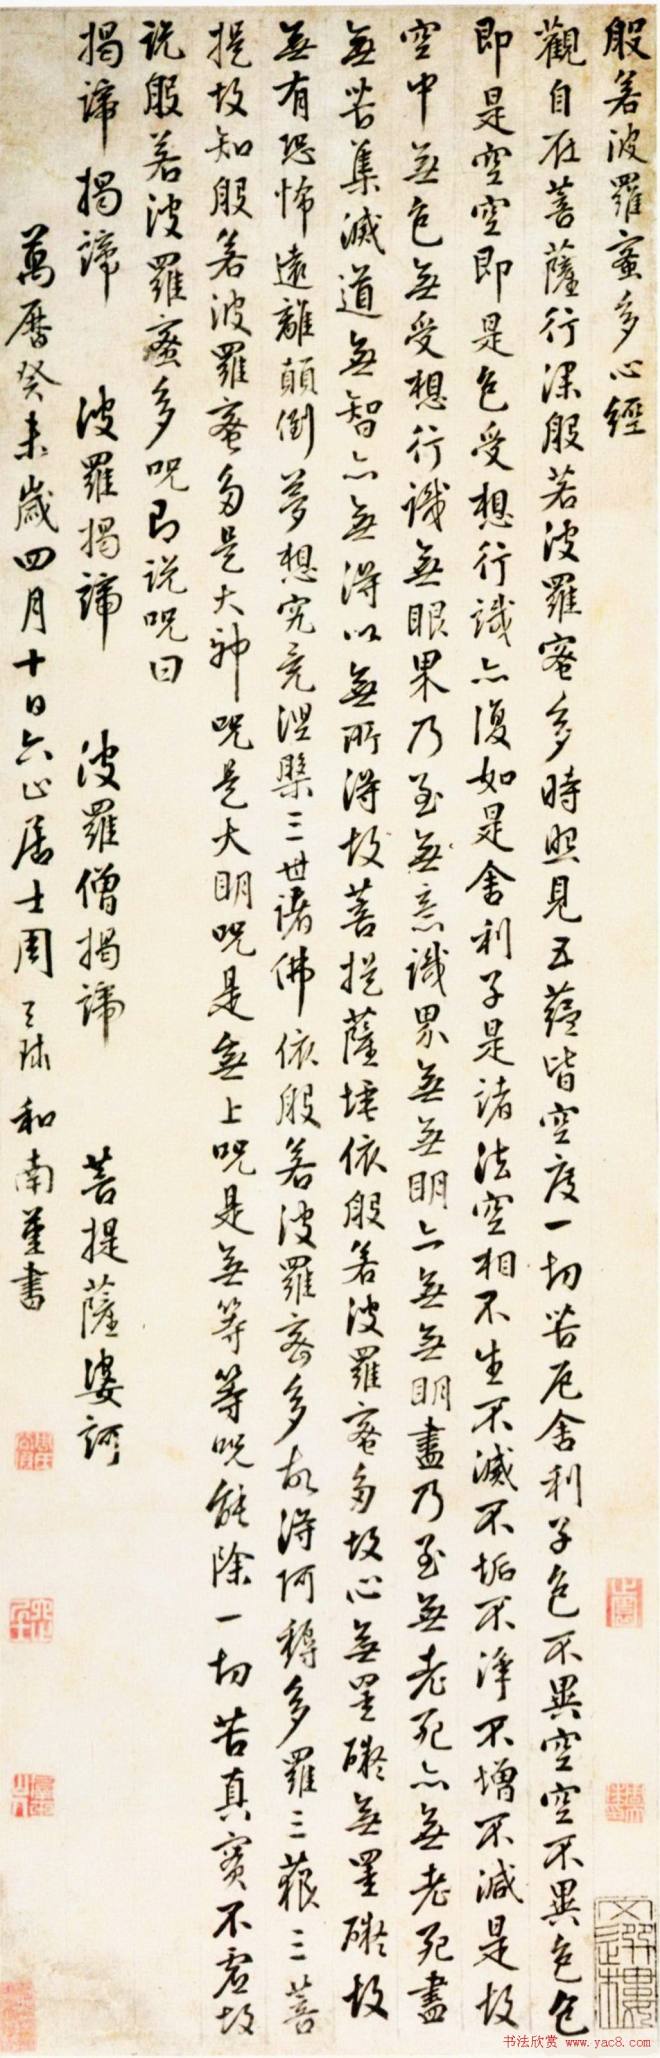 般若波羅蜜多心經
觀自在菩薩行深般若波羅蜜多時照見五蘊皆空度一切苦厄舍利子色不異空空不異色色
即是空空即是色受想行識亦復如是舍利子是諸法空相不生不滅不垢不淨不增不減是故
空中無色無受想行識無眼界乃至無意識界無無明亦無無明盡乃至無老死亦無老死盡
無苦集滅道無智亦無得以無所得故菩提薩埵依般若波羅蜜多故心無罣礙無罣礙故
無有恐怖遠離顛倒夢想究竟涅槃三世諸佛依般若波羅蜜多故得阿耨多羅三藐三菩
提故知般若波羅蜜多是大神呪是大明呪是無上呪是無等等呪能除一切苦真實不虛故
說般若波羅蜜多呪即說呪曰
揭諦揭諦 波羅揭諦 波羅僧揭諦 菩提薩婆訶
萬曆癸未歲四月十日六止居士周天球和南謹書
文選樓
书法欣赏 www.yac8.com